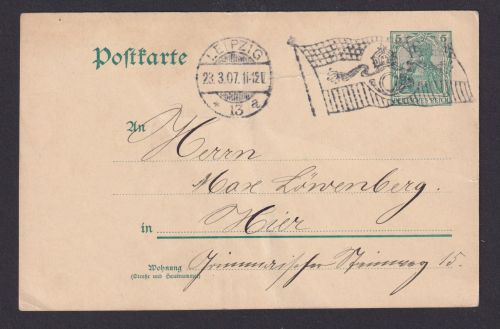 Postkarte
LEIPZIG
23.3.07.11-12V
* 13 a
5 5
DEUTSCHES REICH
An Herrn
Max Löwenberg.
in Hier
Wohnung Grimmaischer Steinweg 15.
(Straße und Hausnummer)